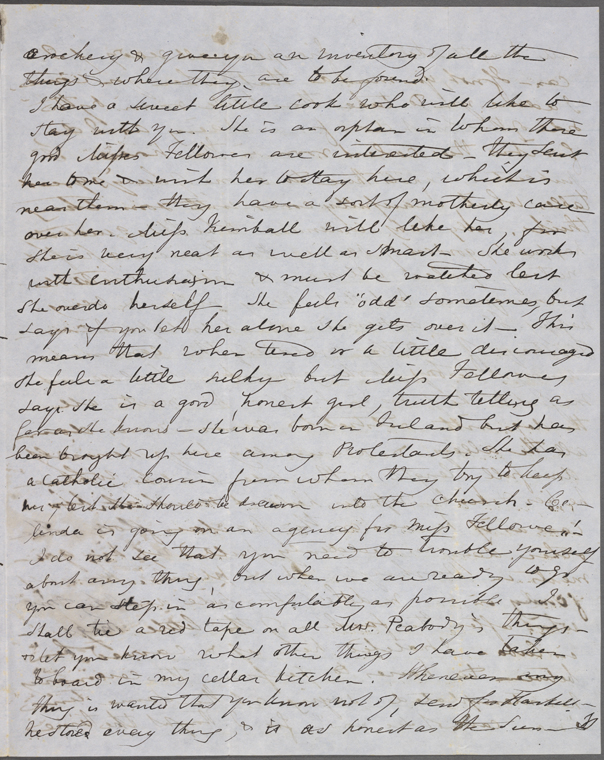 crockery & give you an inventory of all the
things & where they are to be found.
I have a sweet little cook who will like to
stay with you. She is an orphan in whom three
good Misses Fellowes are interested - They sent
her to me & wish her to stay here, which is
near them - they have a sort of motherly care
over her. Miss Kimball will like her, for
she is very neat as well as smart - She works
with enthusiasm & must be watched lest
she overdo herself - She feels "odd" sometimes, but
says if you let her alone she gets over it - This
means that when tired or a little discouraged
she feels a little sulky but Miss Fellowes
says she is a good, honest girl, truth telling as
far as she knows - She was born in Ireland but has
been brought up here among Protestants. She has
a catholic cousin from whom they try to keep
her lest she should be drawn into the church -
linda is going on an agency for Miss Fellowes -
I do not see that you need to trouble yourself
about any thing, but when we are ready to go
you can step in as comfortably as possible - I
shall tie a red tape on all Mrs. Peabody's things -
& let you know what other things I have taken
to board in my cellar kitchen. Whenever any
thing is wanted that you know not of send for
he stored every thing, & is as honest as the Sun -